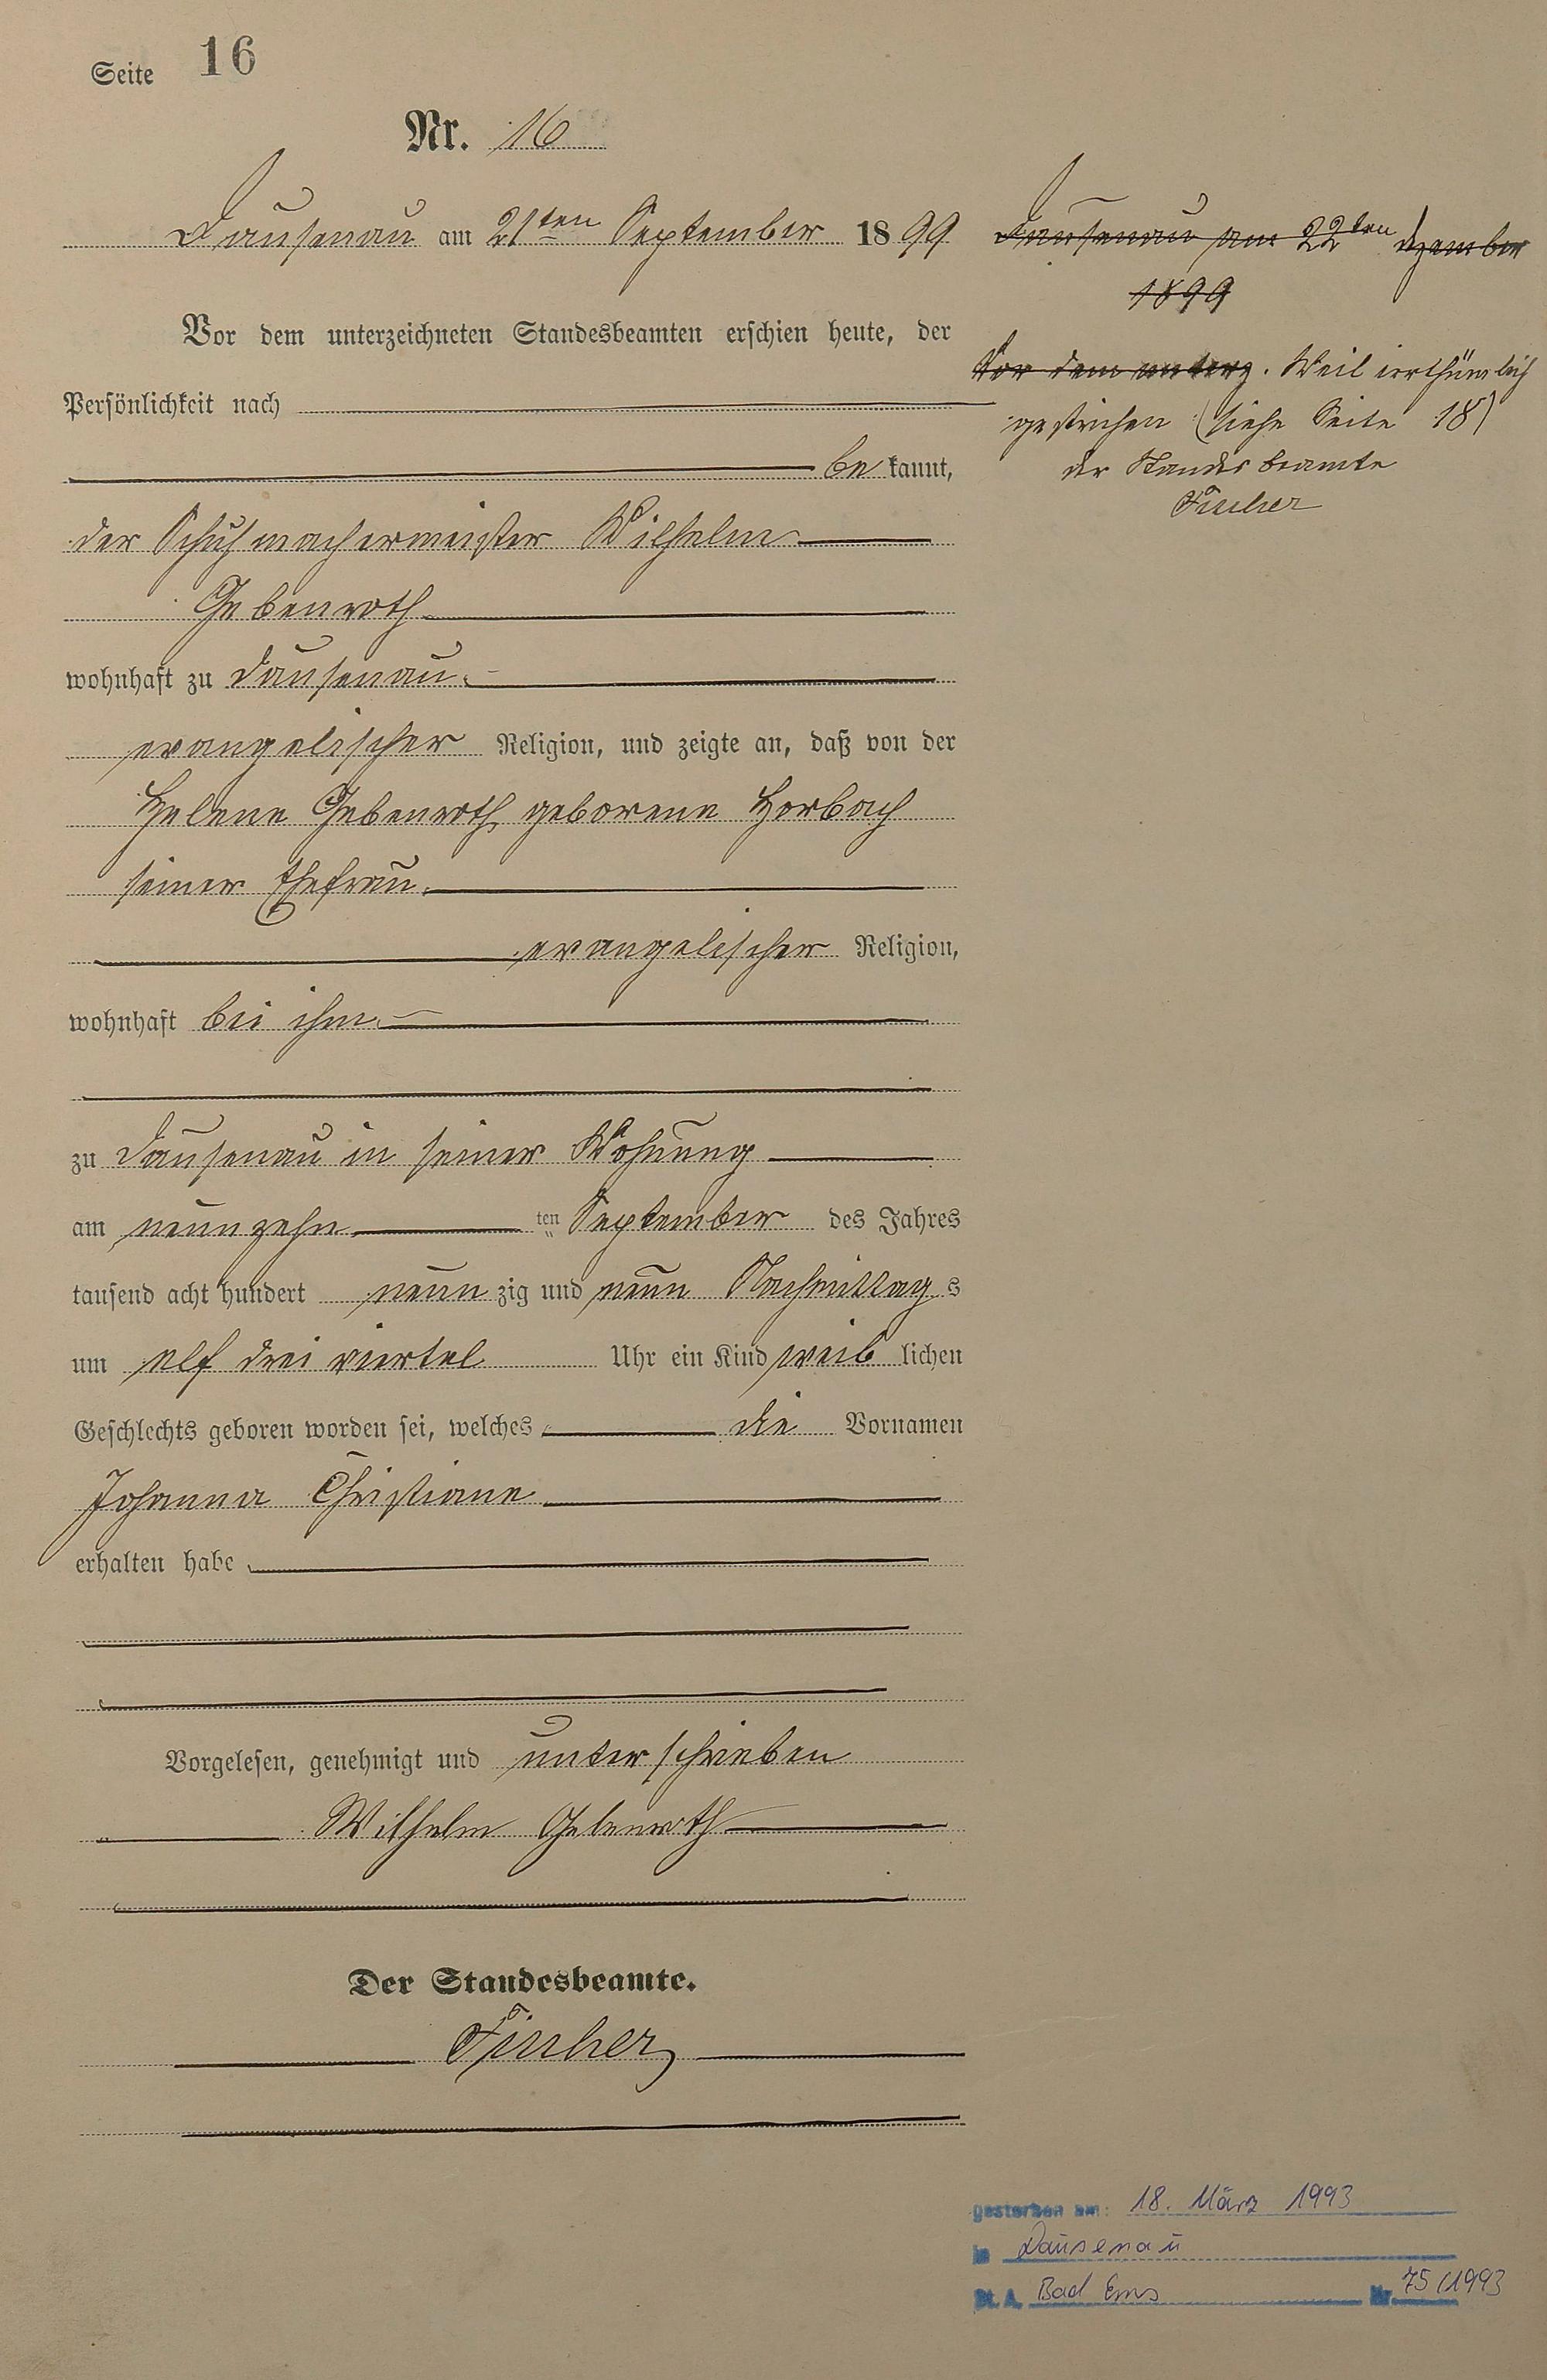 Seite 16
Nr. 16
Dausenau am 21ten September 1899
Vor dem unterzeichneten Standesbeamten erschien heute, der
Persönlichkeit nach
bekannt,
der Schuhmachermeister Wilhelm
Gebenroth
wohnhaft zu Dausenau
evangelischer Religion, und zeigte an, daß von der
Helene Gebenroth geborene Horbach
seiner Ehefrau
evangelischer Religion,
wohnhaft bei ihm
zu Dausenau in seiner Wohnung
am neunzehnten September des Jahres
tausend acht hundert neunzig und neun Nachmittags
um elf drei viertel Uhr ein Kind weiblichen
Geschlechts geboren worden sei, welches die Vornamen
Johanna Christiane
erhalten habe
Vorgelesen, genehmigt und unterschrieben
Wilhelm Gebenroth
Der Standesbeamte.
Dausenau am 22ten Dezember
1899
Vor dem unterz. Weil irrthümlich
gestrichen (siehe Seite 18)
der Standesbeamte
gestorben am: 18. März 1993
in Dausenau
St. A. Bad Ems Nr. 75/1993